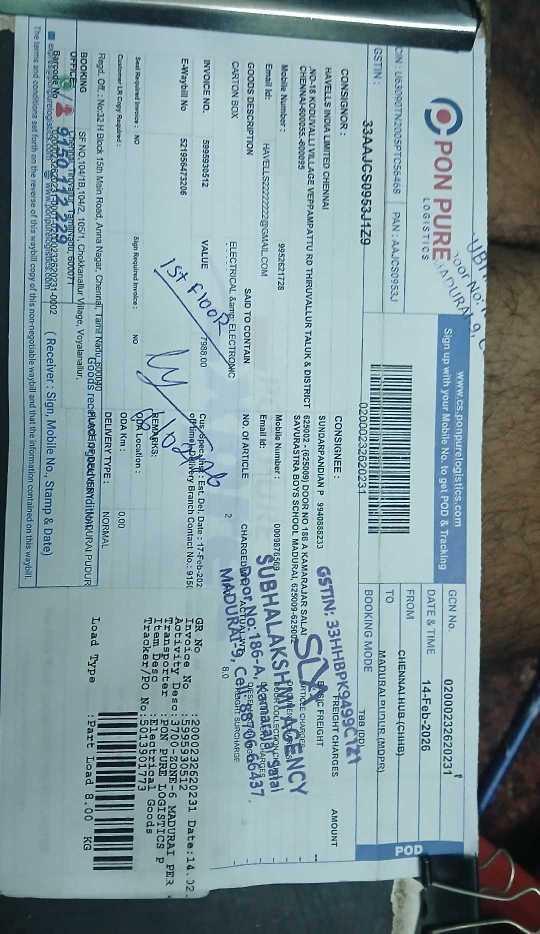 PON PURE
LOGISTICS
www.cs.ponpurelogistics.com
Sign up with your Mobile No. to get POD & Tracking
POD
CIN : U63090TN2005PTC56468
PAN : AAJCS0953J
GSTIN :
33AAJCS0953J1Z9
02000232620231
GCN No.
02000232620231
DATE & TIME
14-Feb-2026
FROM
CHENNAI HUB (CHHB)
TO
MADURAI PUDUR (MDPR)
BOOKING MODE
TBB (DD)
CONSIGNOR :
HAVELLS INDIA LIMITED CHENNAI
,NO-18 KODUVALLI VILLAGE VEPPAMPATTU RD THIRUVALLUR TALUK & DISTRICT
CHENNAI-600055-600095
Mobile Number :
9952621728
Email Id:
CONSIGNEE :
SUNDARPANDIAN P 9940888233
625002 ; (625009) DOOR NO 186 A KAMARAJAR SALAI
SAVURASTRA BOYS SCHOOL MADURAI, 625009-625002
Mobile Number :
Email Id:
FREIGHT CHARGES
AMOUNT
GSTIN: 33HHBPK9499C1Z1
SUBHALAKSHMI AGENCY
Door No: 186-A, Kamarajar Salai
MADURAI-9, Cell: 88706 66437
GOODS DESCRIPTION
SAID TO CONTAIN
NO. Of ARTICLE
CARTON BOX
ELECTRICAL &amp; ELECTRONIC
2
8.0
INVOICE NO.
5995930512
VALUE
7988.00
E-Waybill No
521956473206
1st Floor
Seal Required Invoice : NO
Sign Required Invoice : NO
Customer LR Copy Required :
REMARKS:
ODA Location :
ODA Km :
0.00
DELIVERY TYPE :
NORMAL
Regd. Off. : No:32 H Block 15th Main Road, Anna Nagar, Chennai, Tamil Nadu, 600040
BOOKING
OFFICE
SF NO.104/1B,104/2, 105/1, Chokkanallur Village, Voyalanallur,
9150 113 229
( Receiver : Sign, Mobile No., Stamp & Date)
The terms and conditions set forth on the reverse of this waybill copy of this non-negotiable waybill and that the information contained on this waybill.
GR No :2000232620231 Date:14.02.
Invoice No :5995930512
Activity Desc :3700-ZONE-6 MADURAI PER
Transporter :PON PURE LOGISTICS P
Item Desc :Electrical Goods
Tracker/PO No:5013901773
Load Type :Part Load 8.00 KG